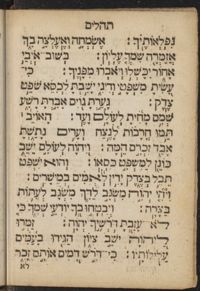 תהלים
נפלאותיך: אשמחה ואעלצה בך
אזמרה שמך עליון: בשוב אויבי
אחור יכשלו ויאבדו מפניך: כי
עשית משפטי ודיני ישבת לכסא שופט
צדק: גערת גוים אבדת רשע
שמם מחית לעולם ועד: האויב
תמו חרבות לנצח וערים נתשת
אבד זכרם המה: ויהוה לעולם ישב
כונן למשפט כסאו: והוא ישפט
תבל בצדק ידין לאמים במישרים:
ויהי יהוה משגב לדך משגב לעתות
בצרה: ויבטחו בך יודעי שמך כי
לא עזבת דרשיך יהוה: זמרו
ליהוה ישב ציון הגידו בעמים
עלילותיו: כי דרש דמים אותם זכר
לא